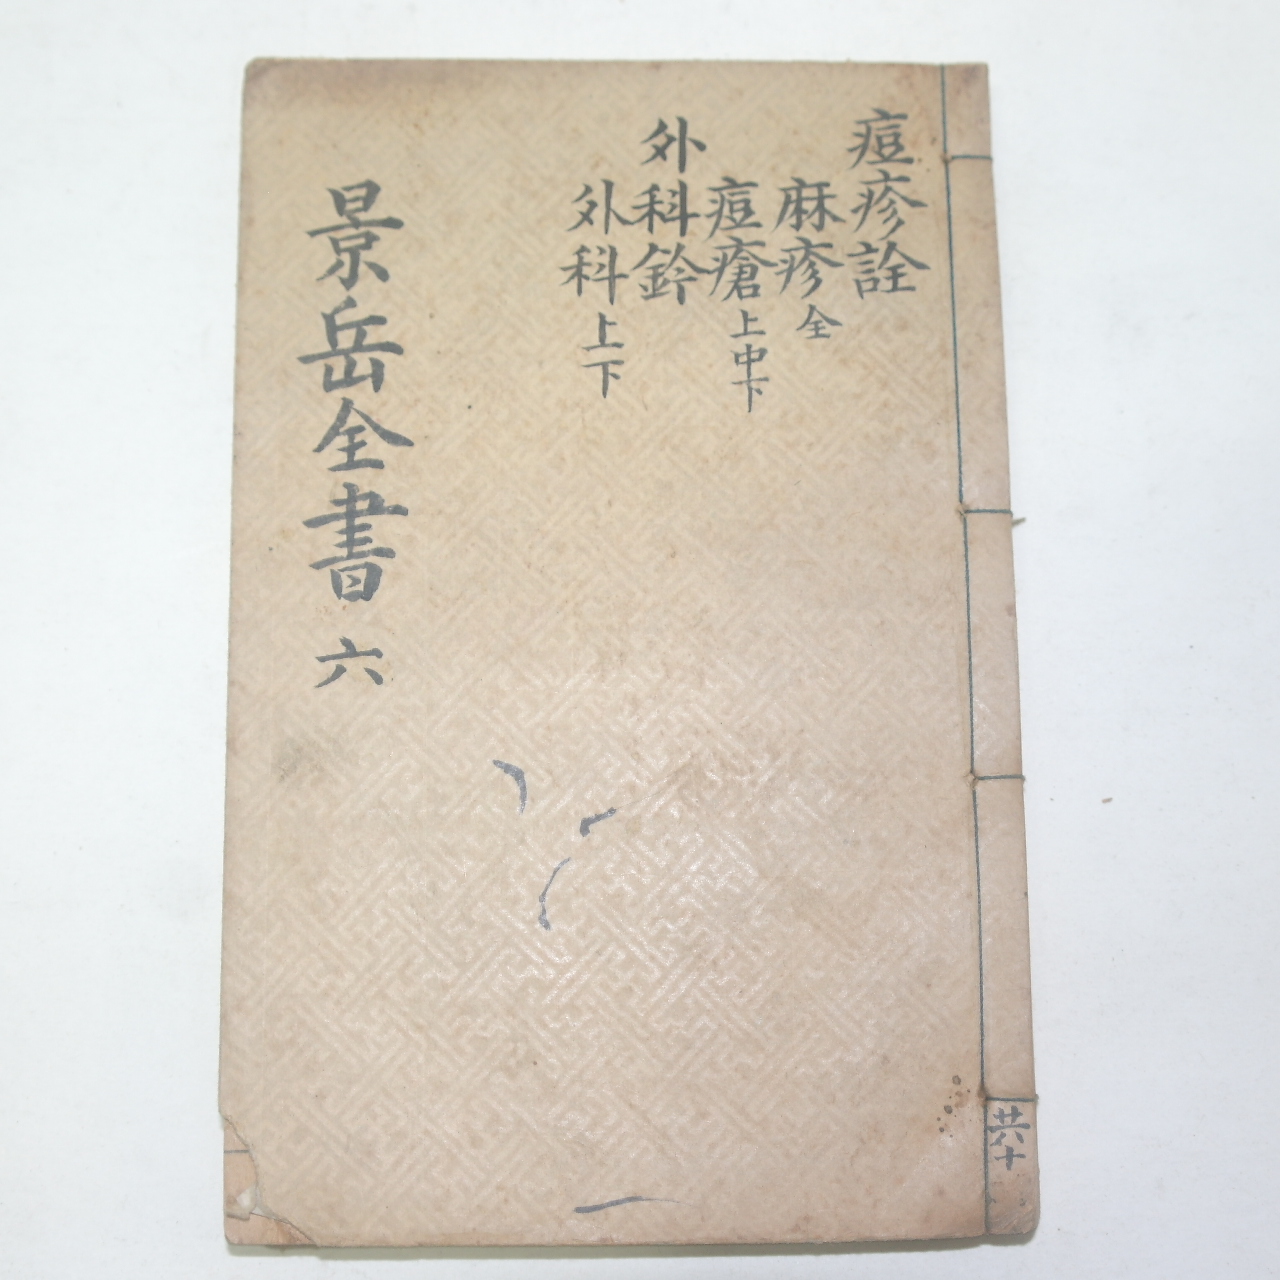 痘疹詮
麻疹全
痘瘡上中下
外科鈐
外科上下
景岳全書 六
共十